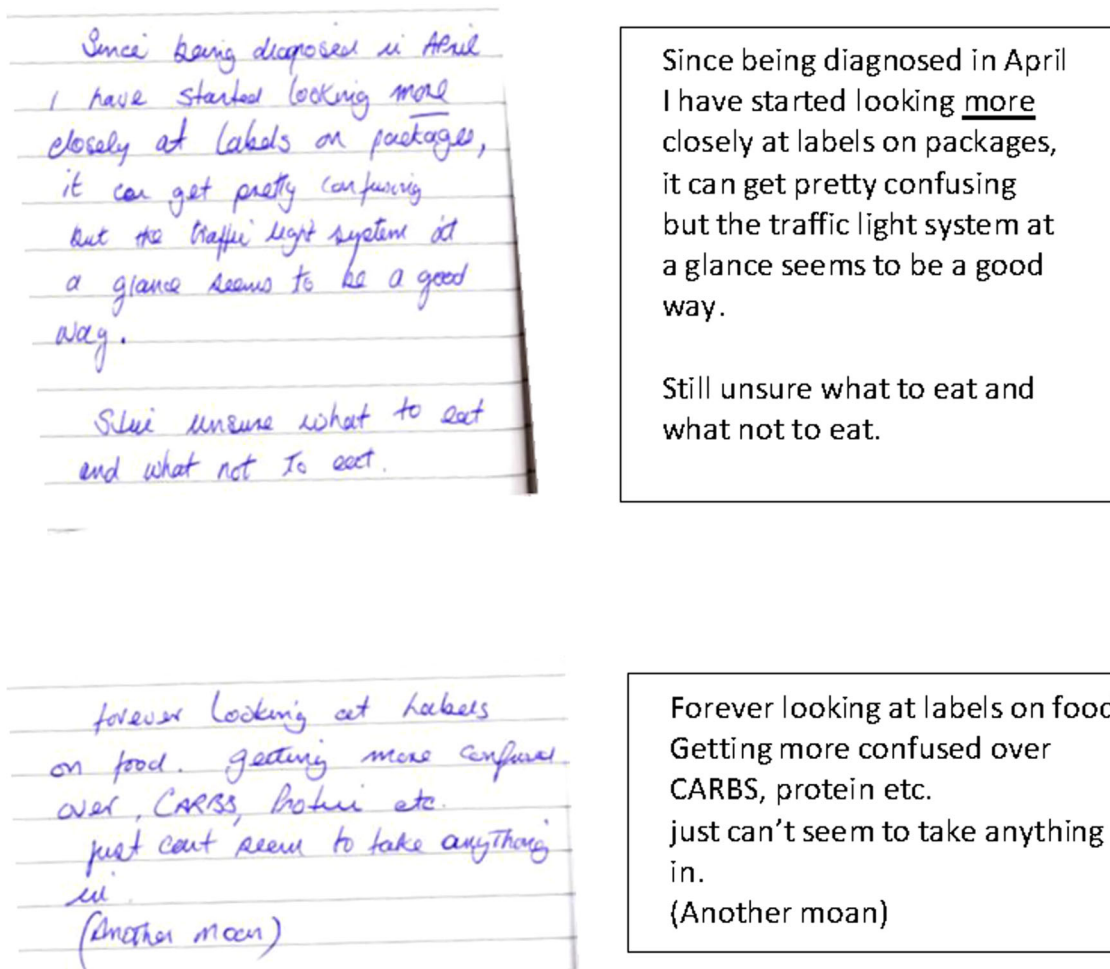 Since being diagnosed in April
I have started looking more
closely at labels on packages,
it can get pretty confusing
but the traffic light system at
a glance seems to be a good
way.
Still unsure what to eat
and what not to eat.
Since being diagnosed in April
I have started looking more
closely at labels on packages,
it can get pretty confusing
but the traffic light system at
a glance seems to be a good
way.
Still unsure what to eat and
what not to eat.
forever looking at labels
on food. getting more confused
over, CARBS, Protein etc.
just cant seem to take anything
in.
(Another moan)
Forever looking at labels on food
Getting more confused over
CARBS, protein etc.
just can't seem to take anything
in.
(Another moan)